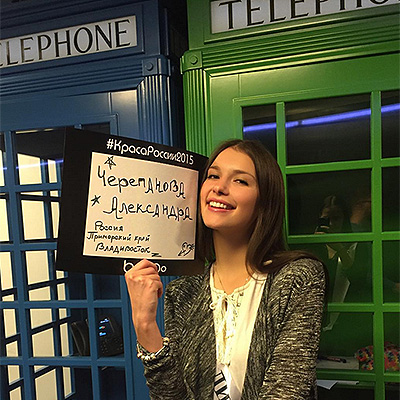 TELEPHONE
TELEPHONE
#КрасаРоссии2015
Черепанова
Александра
Россия
Приморский край
Владивосток